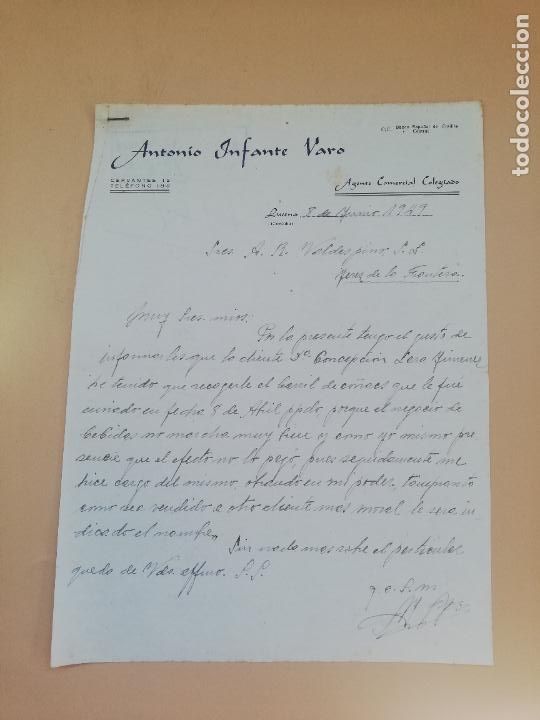 todocoleccion
C/C. Banco Español de Crédito
Antonio Infante Varo
CERVANTES 12
TELÉFONO
Agente Comercial Colegiado
Lucena 8 de 1.949
(Córdoba)
Sres. A. R. Valdespino, S. L.
Jerez de la Frontera.
Muy Sres. mios:
Por la presente tengo el gusto de
informarles que la cliente Dª Concepción Jimenez
he tenido que recogerle el barril de coñacs que le fué
enviado en fecha 8 de Abril ppdo porque el negocio de
bebidas no marcha muy bien y como yo mismo pre
sencie que el efecto no lo pagó, pues seguidamente me
hice cargo del mismo, obrando en mi poder, tan pronto
como sea vendido a otro cliente mas moral le sera in
dicado el nombre.
Sin nada mas sobre el particular
queda de Vds. affmo. S. S.
q. e. s. m.